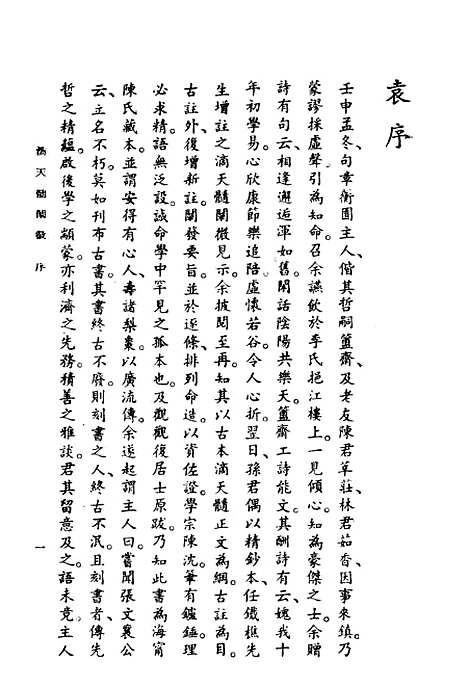 袁序
壬申孟冬、句章衡園主人、偕其哲嗣簠齋、及老友陳君草莊、林君茹香、因事來鎮。乃
蒙謬採虛聲、引為知命。召余讌飲於季氏挹江樓上。一見傾心。知為豪傑之士。余贈
詩有句云、相逢邂逅渾如舊。閒話陰陽共樂天。簠齋工詩能文。其酬詩有云、媿我十
年初學易。心欣康節樂追陪。虛懷若谷。令人心折。翌日、孫君偶以精鈔本、任鐵樵先
生增註之滴天髓闡微見示。余披閱至再。知其以古本滴天髓正文為綱。古註為目。
古註外、復增新註。闡發要旨。並於逐條、排列命造。以資佐證。學宗陳沈。筆有鑪錘。理
必求精。語無泛設。誠命學中罕見之孤本也。及觀觀復居士原跋。乃知此書為海甯
陳氏藏本。並謂安得有心人、壽諸梨棗。以廣流傳。余遂起謂主人曰。嘗聞張文襄公
云、立名不朽。莫如刊布古書。其書終古不廢。則刻書之人、終古不泯。且刻書者、傳先
哲之精蘊。啟後學之顓蒙。亦利濟之先務。積善之雅談。君其留意及之。語未竟、主人
滴天髓闡微 序
一